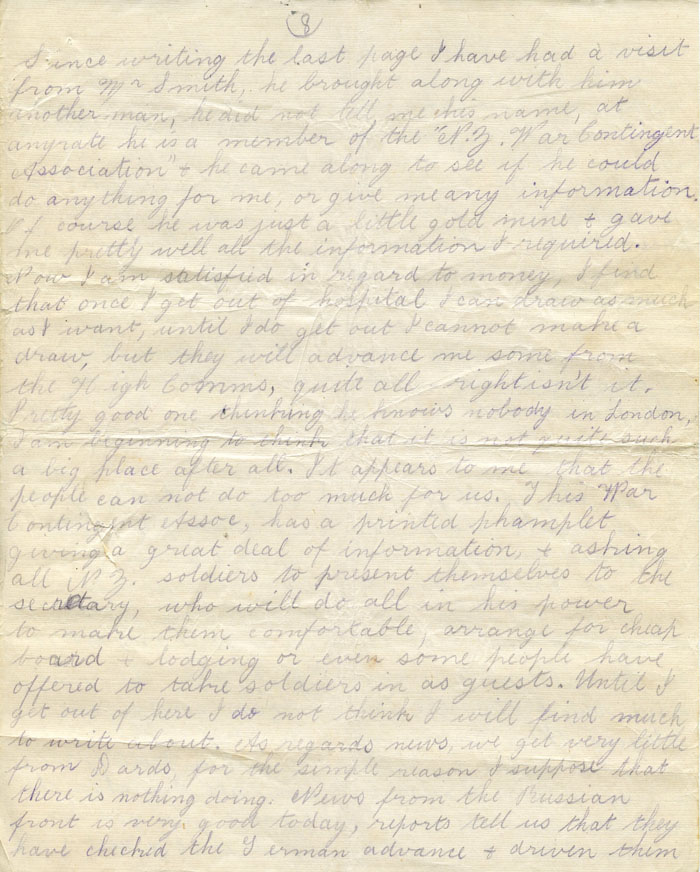 8
Since writing the last page I have had a visit
from Mr Smith, he brought along with him
another man, he did not tell me his name, at
anyrate he is a member of the "N.Z. War Contingent
Association" & he came along to see if he could
do anything for me, or give me any information.
Of course he was just a little gold mine & gave
me pretty well all the information I required.
Now I am satisfied in regard to money, I find
that once I get out of hospital I can draw as much
as I want, until I do get out I cannot make a
draw, but they will advance me some from
the High Comms, quite all right isn't it.
Pretty good one thinking he knows nobody in London,
I am beginning to think that it is not quite such
a big place after all. It appears to me that the
people can not do too much for us. This War
Contingent Assoc, has a printed phamplet
giving a great deal of information, & asking
all N.Z. soldiers to present themselves to the
secretary, who will do all in his power
to make them comfortable, arrange for cheap
board & lodging or even some people have
offered to take soldiers in as guests. Until I
get out of here I do not think I will find much
to write about. As regards news, we get very little
from Dards, for the simple reason I suppose that
there is nothing doing. News from the Russian
front is very good today, reports tell us that they
have checked the German advance & driven them